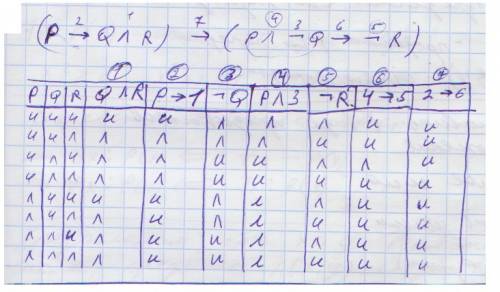 (P → Q ∧ R) → (P ∧ ¬ Q → ¬ R)
2 1 7 4 3 6 5
① ② ③ ④ ⑤ ⑥ ⑦
P Q R Q∧R P→1 ¬Q P∧3 ¬R 4→5 2→6
и и и и и л л л и и
и и л л л л л и и и
и л и л л и и л л и
и л л л л и и и и и
л и и и и л л л и и
л и л л и л л и и и
л л и л и и л л и и
л л л л и и л и и и